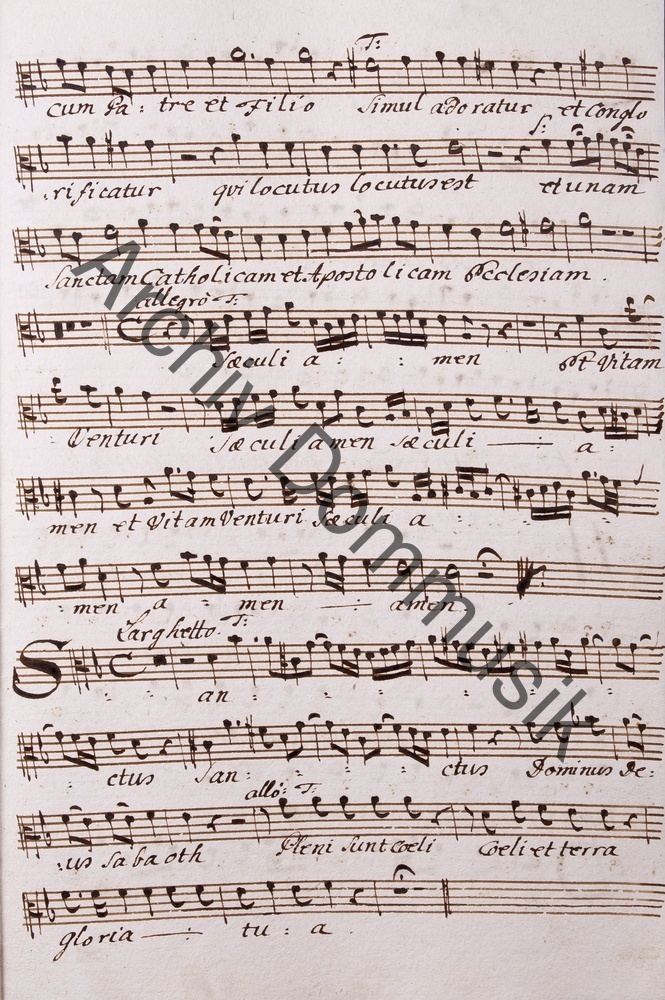 T:
Cum Pa : tre et Filio Simul adoratur et Conglo
S:
: rificatur qui locutus locutus est et unam
Sanctam Catholicam et Apostolicam Ecclesiam .
allegro T:
Sæculi a : : men Et Vitam
Venturi Sæculi amen sæculi — a :
men et Vitam Venturi Sæculi a : : :
: men a : men — : amen
Larghetto T:
San : : : : :
: ctus San : : : ctus Dominus De :
allo: T:
: us Sabaoth Pleni Sunt Coeli Coeli et terra
gloria — : tu : a .
Archiv Dommusik